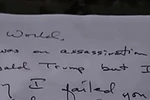 World,
was an assassination
ald Trump but I
I failed you